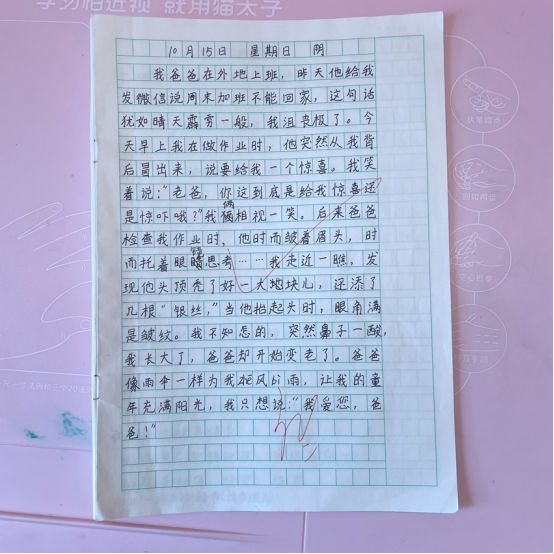 学习相近视 就用猫太子
10月15日 星期日 阴
我爸爸在外地上班，昨天他给我
发微信说周末加班不能回家，这句话
犹如晴天霹雳一般，我沮丧极了。今
天早上我在做作业时，他突然从我背
后冒出来，说要给我一个惊喜。我笑
着说：“老爸，你这到底是给我惊喜还
是惊吓哦？”我俩相视一笑。后来爸爸
检查我作业时，他时而皱着眉头，时
而托着眼睛思考……我走近一瞧，发
现他头顶秃了好一大地块儿，还添了
几根“银丝，”当他抬起头时，眼角满
是皱纹。我不知怎的，突然鼻子一酸，
我长大了，爸爸却开始变老了。爸爸
像雨伞一样为我挡风bì雨，让我的童
年充满阳光，我只想说：“我爱您，爸
爸！”